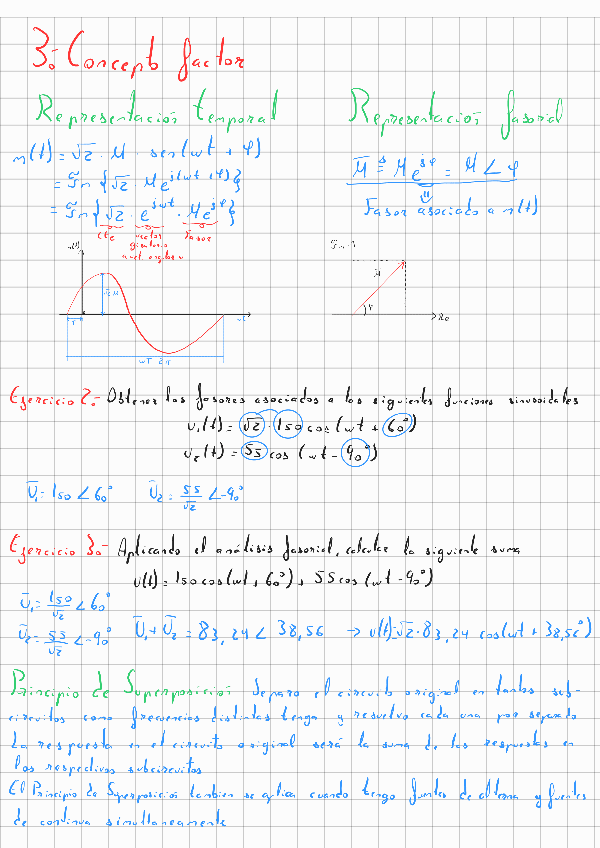 3º- Concepto factor
Representación temporal
Representación fasorial
m(t) = √2 · M · sen(wt + φ)
= Im{√2 · M e^j(wt+φ)}
= Im{√2 · e^jwt · M e^jφ}
Cte vector Fasor
giratorio
a vel. angular w
M̄ ≜ M e^jφ = M ∠ φ
Fasor asociado a m(t)
√2 M
wt
wT = 2π
M
φ
Re
Ejercicio 2:- Obtener los fasores asociados a las siguientes funciones sinusoidales
v₁(t) = √2 · 150 cos (wt + 60°)
v₂(t) = 55 cos (wt - 90°)
Ū₁ = 150 ∠ 60° Ū₂ = 55/√2 ∠ -90°
Ejercicio 3º- Aplicando el análisis fasorial, calcular la siguiente suma
v(t) = 150 cos(wt + 60°) + 55 cos (wt - 90°)
Ū₁ = 150/√2 ∠ 60°
Ū₂ = 55/√2 ∠ -90° Ū₁ + Ū₂ = 83,24 ∠ 38,56 → v(t) = √2 · 83,24 cos(wt + 38,56°)
Principio de Superposición Separo el circuito original en tantos sub-
circuitos como frecuencias distintas tenga y resuelvo cada una por separado
La respuesta en el circuito original será la suma de las respuestas en
los respectivos subcircuitos
El Principio de Superposición tambien se aplica cuando tengo fuentes de alterna y fuentes
de continua simultaneamente